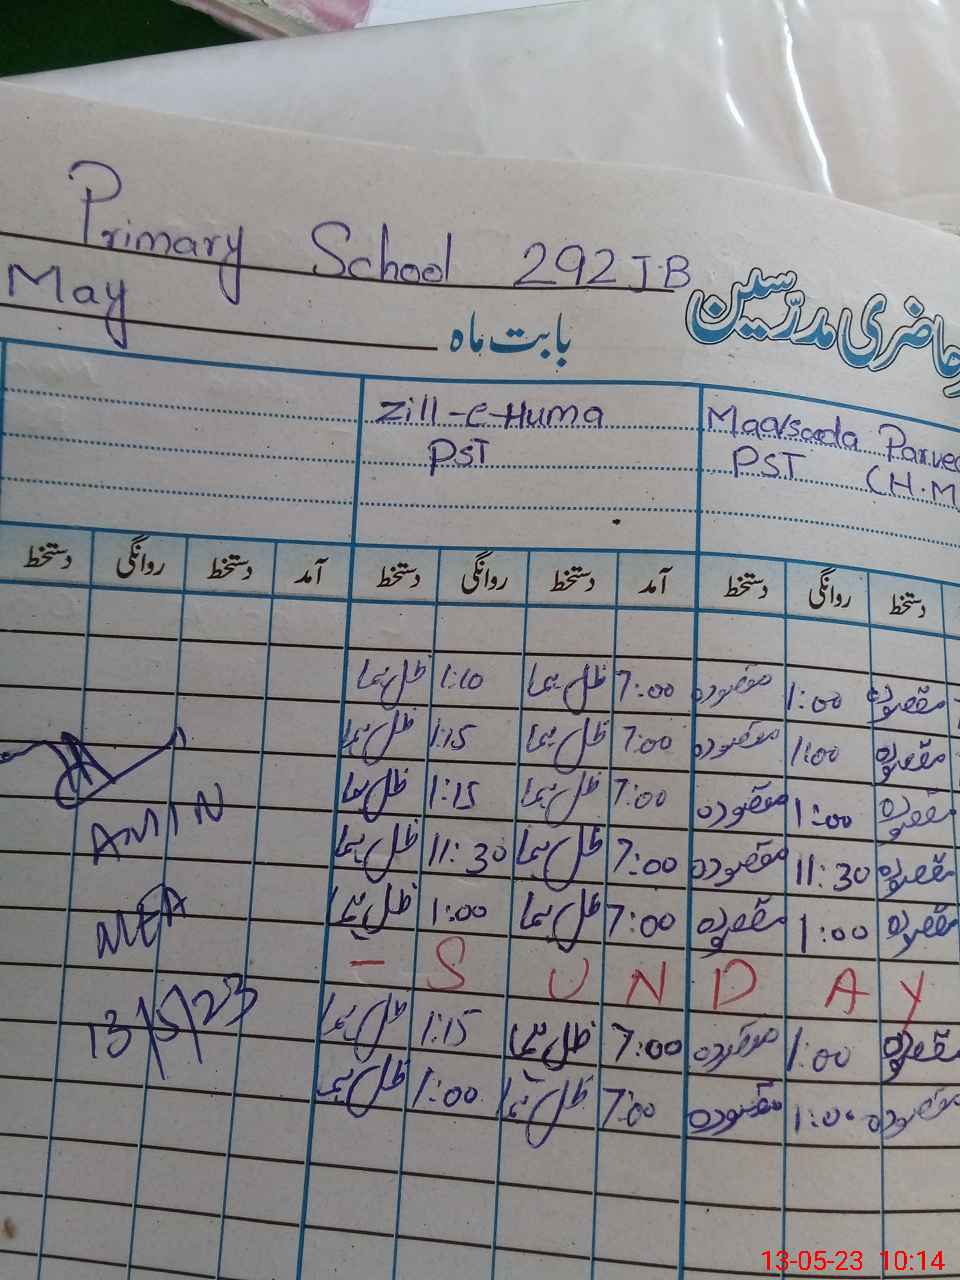 Primary School 292 J.B
حاضری مدرّسین
بابت ماہ May
Zill-e-Huma
PST
PST (H.M
دستخط روانگی دستخط آمد دستخط روانگی دستخط آمد دستخط روانگی دستخط
مقصودہ 1:00 مقصودہ 7:00 ظل ہما 1:10 ظل ہما
مقصودہ 1:00 مقصودہ 7:00 ظل ہما 1:15 ظل ہما
مقصودہ 1:00 مقصودہ 7:00 ظل ہما 1:15 ظل ہما
مقصودہ 11:30 مقصودہ 7:00 ظل ہما 11:30 ظل ہما
مقصودہ 1:00 مقصودہ 7:00 ظل ہما 1:00 ظل ہما
- S U N D A Y
مقصودہ 1:00 مقصودہ 7:00 ظل ہما 1:15 ظل ہما
مقصودہ 1:00 مقصودہ 7:00 ظل ہما 1:00 ظل ہما
AMIN
MEA
13/5/23
13-05-23 10:14